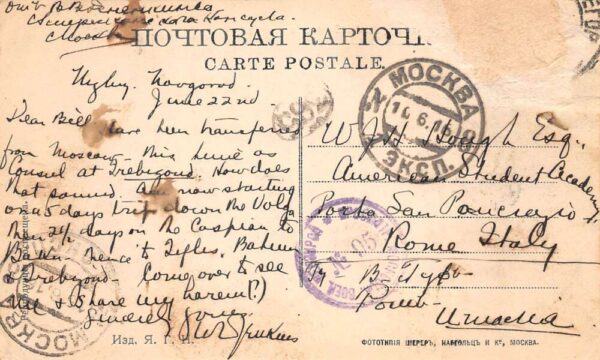 Москва
ПОЧТОВАЯ КАРТОЧ
CARTE POSTALE.
Nizhny Novgorod
June 22nd
Dear Bill have been transferred
from Moscow this time as
Consul at Trebizond. How does
that sound. Am now starting
on a 5 days trip down the Volga
then 2½ days on the Caspian to
Baku hence to Tiflis, Batum
& Trebizond Come over to see
me & share my harem(?)
Sincerely yours
МОСКВА
ЭКСП.
Esq.
American Student Academy
Porta San Pancrazio
Rome Italy
Въ
Римъ
Италиа
МОСКВА
Изд. Я. Г. И.
ФОТОТИПІЯ ШЕРЕРЪ, НАБГОЛЬЦЪ И Кº, МОСКВА.